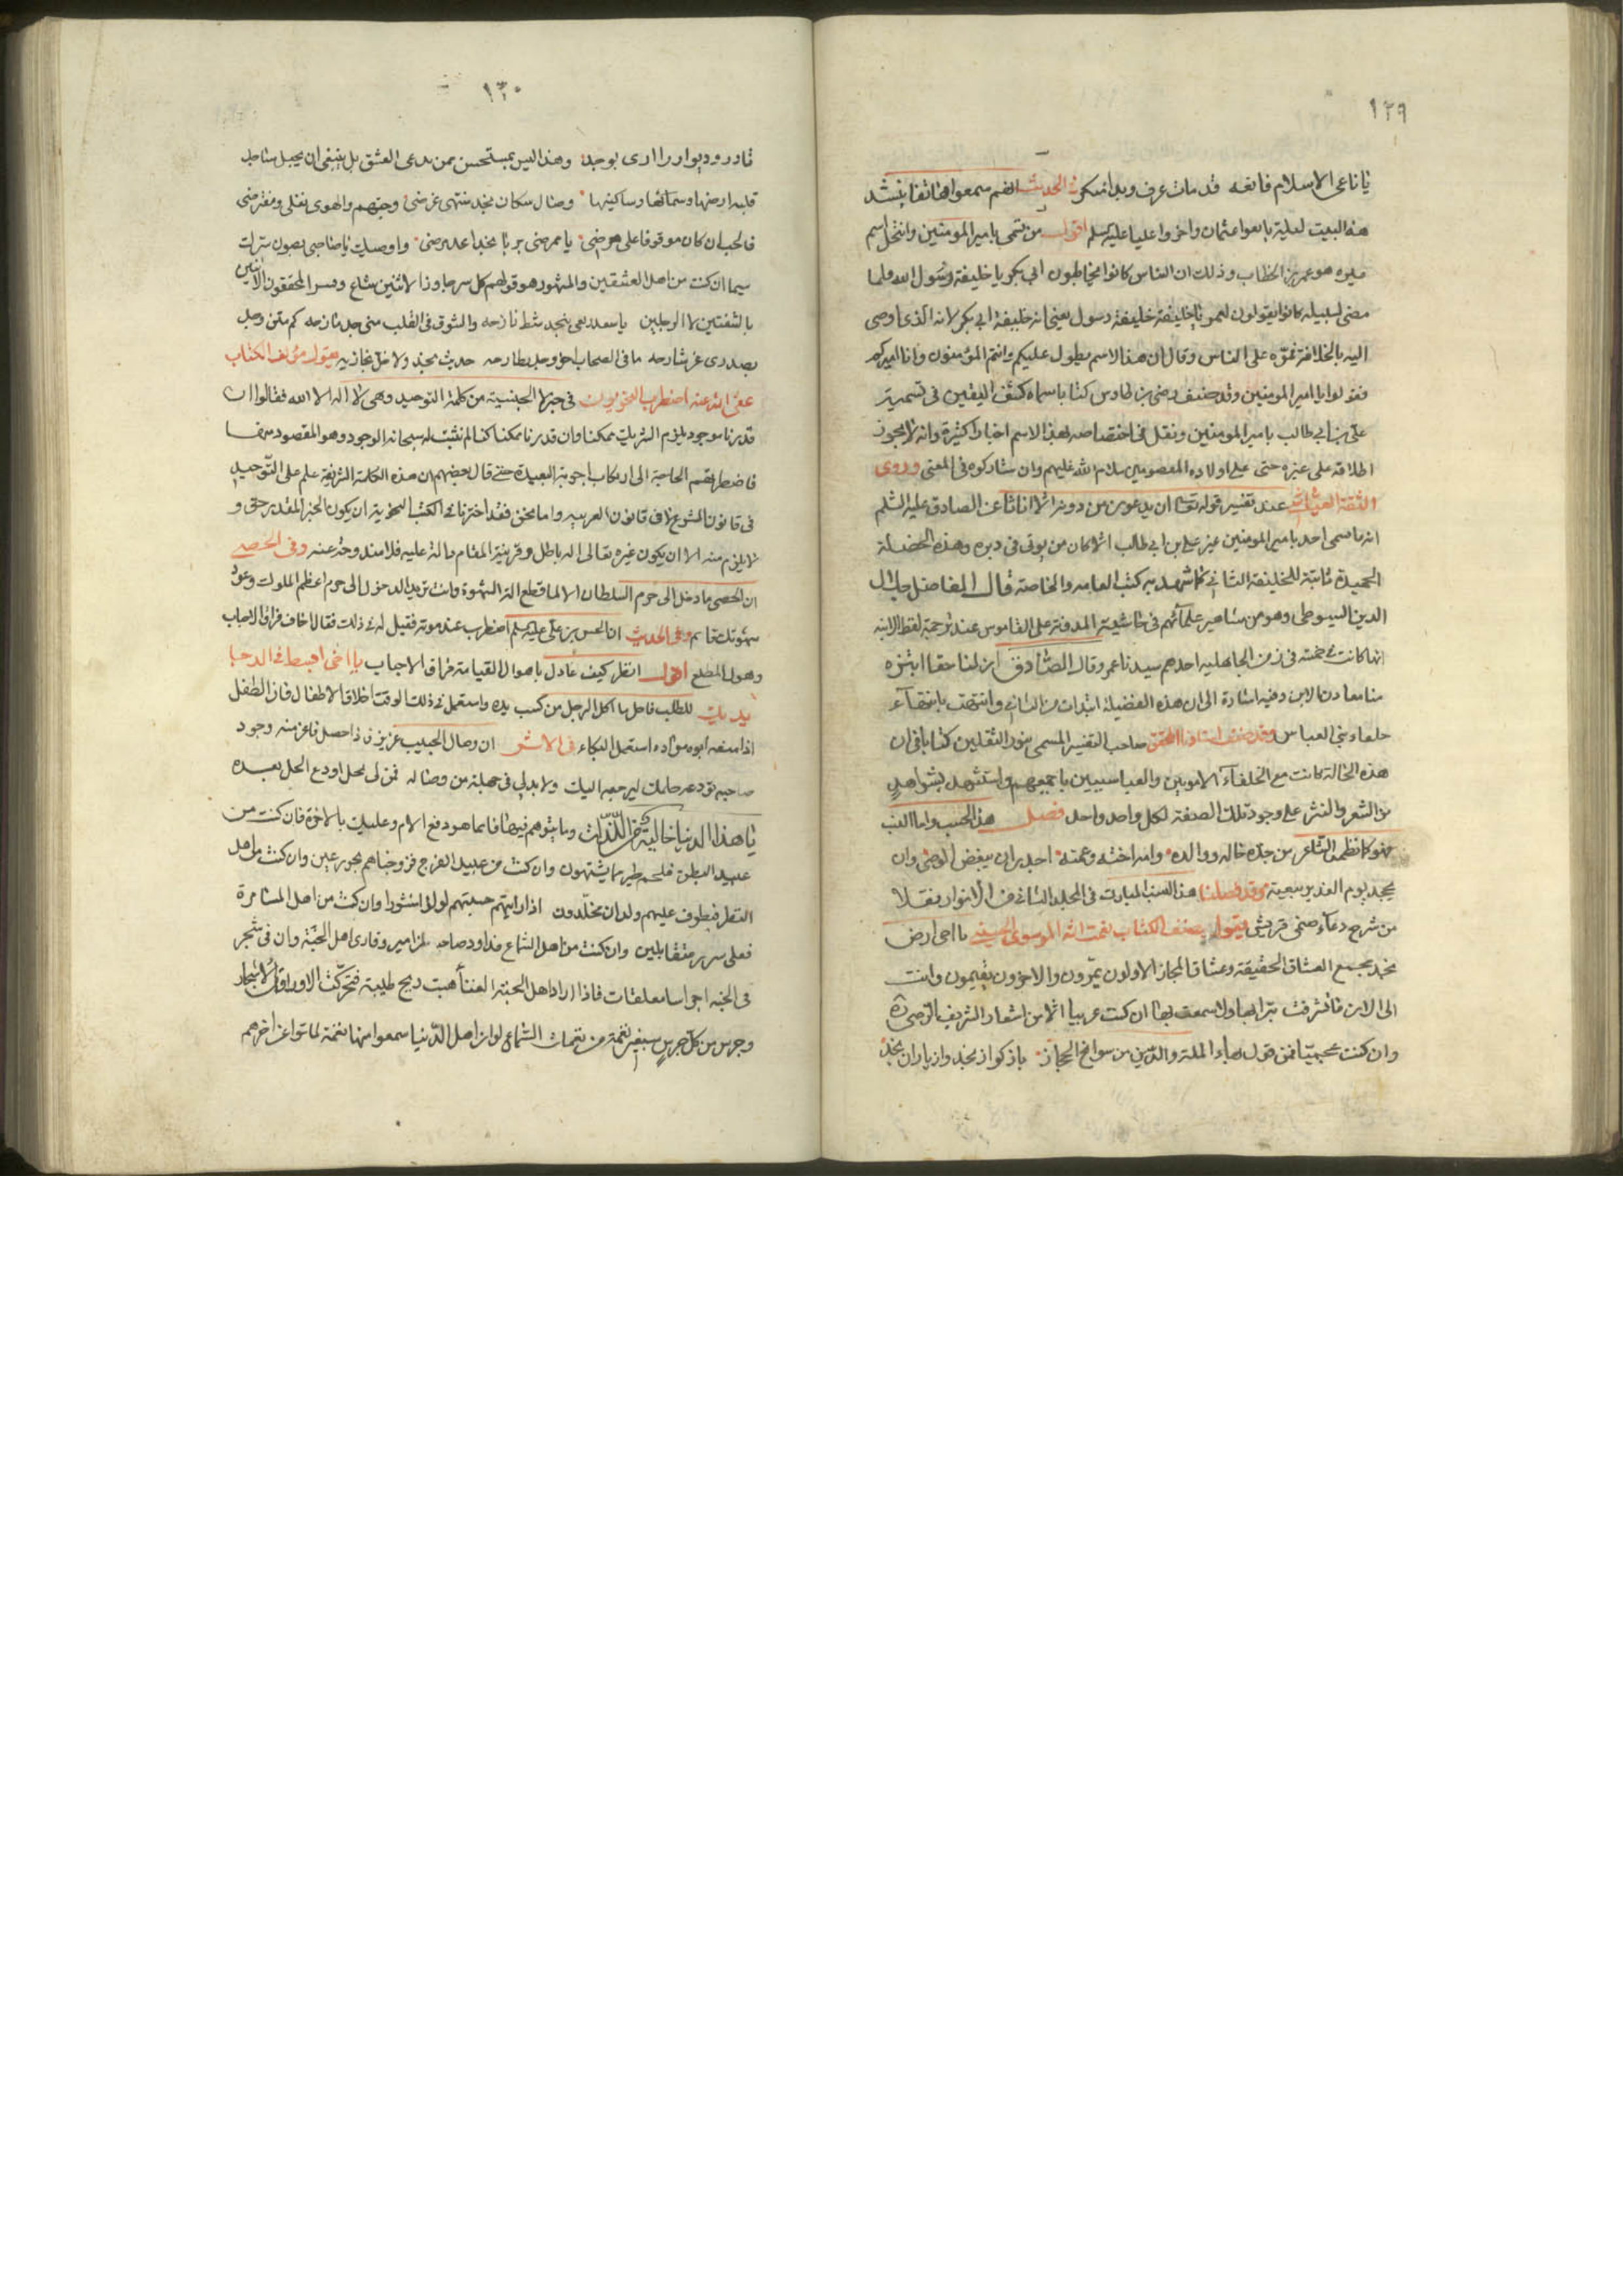 ١٢٩
يا ناعى الاسلام قم فانعه قد مات عرف وبدا منكر الحديث انهم سمعوا هاتفا ينشد
هذا البيت ليلة بايعوا عثمان واخروا عليا عليه السلم اقول من تسمى بامير المومنين وانتحل اسم
غيره هو عمر بن الخطاب وذلك ان الناس كانوا يخاطبون ابى بكر يا خليفة رسول الله فلما
مضى لسبيله كانوا يقولون لعمر يا خليفة خليفة رسول يعنى انه خليفة ابى بكر لانه الذى اوصى
اليه بالخلافة فموّه على الناس وقال ان هذا الاسم يطول عليكم وانتم المؤمنون وانا اميركم
فقولوا يا امير المومنين وقد صنف رضى بن طاوس كتابا سماه كشف اليقين فى تسمية
على بن ابى طالب بامير المومنين ونقل فى اختصاصه بهذا الاسم اخبارا كثيرة وانه لا يجوز
اطلاقه على غيره حتى على اولاده المعصومين سلام الله عليهم وان شاركوه فى المعنى وروى
الثقة العياشى عند تفسير قوله تعالى ان يدعون من دونه الا اناثا عن الصادق عليه السلم
انه ما سمى احد بامير المومنين غير على بن ابى طالب الا كان من يوتى فى دبره وهذه الخصلة
الحميدة ثابتة للخليفة الثانى كما شهد به كتب العامه والخاصة قال الفاضل جلال
الدين السيوطى وهو من مشاهير علمآئهم فى حاشيته المدونة على القاموس عند ترجمة لفظ الابنه
انها كانت فى خمسة فى زمن الجاهلية احدهم سيدنا عمر وقال الصادق ان لنا حقا ابتزه
منا معادن الابن وفيه اشارة الى ان هذه الفضيلة ابتدات من الثانى وانتهت بانتهآء
خلفاء بنى العباس وقد صنف استادنا المحقق صاحب التفسير المسمى بنور الثقلين كتابا فى ان
هذه الحالة كانت مع الخلفآء الامويين والعباسيين باجمعهم واستشهد بشواهد
من الشعر والنثر على وجود تلك الصفة لكل واحد واحد فصل هذا الحسب واما النسب
فهو كما نظمه الشاعر من جده خاله ووالده وامه اخته وعمته اجدر ان يبغض الوصى وان
يجحد يوم الغدير بيعته وقد فصلنا هذا النسب المبارك فى المجلد الثانى من الانوار نقلا
من شرح دعآء صنمى قريش يقول مصنف الكتاب نعمت الله الموسوى الحسينى يا اخى ارض
نجد مجمع العشاق الحقيقة وعشاق المجاز الاولون يمرون والاخرون يقيمون وانت
الى الان ما تشرفت بترابها ولا سمعت بها ان كنت عربيا الا من اشعار الشريف الرضى ره
وان كنت عجميّا فمن قول بهاء الملة والدين من سوانح الحجاز باز كو از نجد واز ياران نجد
١٣٠
تا در وديوار را ارى بوجد وهذا ليس بمستحسن ممن يدعى العشق بل ينبغى ان يجعل مناجل
قلبه ارضها وسمائها وساكنيها وصال سكان نجد منتهى غرضى وحبهم والهوى نفلى ومفترضى
فالحب ان كان موقوفا على مرضى يا ممرضى بربا نجد اعد مرضى واوصيك يا صاحبى بصون سرك
سيما ان كنت من اهل العشقين والمشهور هو قولهم كل سر جاوز الاثنين شاع وفسر المحققون الاثنين
بالشفتين لا الرجلين يا سعد بنجد شط نازحه والشوق فى القلب كم متن وجد
بصدرى عز شارحه ما فى الصحاب اخو وجد يطارحه حديث نجد ولا خل نجاريه يقول مؤلف الكتاب
عفى الله عنه اضطرب النحويون فى خبر لا الجنسية من كلمة التوحيد وهى لا اله الا الله فقالوا ان
قدرنا موجود يلزم الشريك ممكنا وان قدرنا ممكنا كنا لم نثبت له سبحانه الوجود وهو المقصود منها
فاضطرتهم الحاجة الى ارتكاب اجوبة البعيدة حتى قال بعضهم ان هذه الكلمة الشريفة علم على التوحيد
فى قانون الشرع لا فى قانون العربيه واما نحن فقد اخترنا فى الكتب النحوية ان يكون الخبر المقدر حق و
لا يلزم منه الا ان يكون غيره تعالى اله باطل وقرينة المقام دالة عليه فلا مندوحة عنه وفى الخصى
ان الخصى ما دخل الى حرم السلطان الا لما قطع الة الشهوة وانت تريد الدخول الى حرم اعظم الملوك وعود
شهوتك قايم وفى الحديث ان الحسن بن على عليه السلم اضطرب عند موته فقيل له فى ذلك فقال اخاف فراق الاحباب
وهول المطلع اقول انظر كيف عادل باهوال القيامة فراق الاحباب يا اخى ابسط فى الدجا
يديك للطلب فاحل ما اكل الرجل من كسب يده واستعمل فى ذلك الوقت اخلاق الاطفال فان الطفل
اذا منعه ابوه مراده استعمل البكاء فى الاثر ان وصال الحبيب عزيز فاذا حصل فاعز منه وجود
صاحبه تودعه حاله ليرجعه اليك ولا بد لى فى جملة من وصاله فمن لى بخل اودع الخل بعده
يا هذا الدنيا خالية من اللذات وما يتوهم فيها فانما هو دفع الالام وعليك بالاخرة فان كنت من
عبيد البطن فلحم طير مما يشتهون وان كنت من عبيد الفرج فزوجناهم بحور عين وان كنت من اهل
النظر فيطوف عليهم ولدان مخلدون اذا رايتهم حسبتهم لؤلؤا منثورا وان كنت من اهل المسامرة
فعلى سرر متقابلين وان كنت من اهل السماع فداود صاحب المزامير وقارى اهل الجنة وان فى شجر
فى الجنه اجراسا معلقات فاذا اراد اهل الجنة الغنا هبت ريح طيبة فتحركت الاوراق والاشجار
وجرس من كل جرس سبعين نغمة من نغمات السماع لو ان اهل الدنيا سمعوا منها نغمة لماتوا عن اخرهم